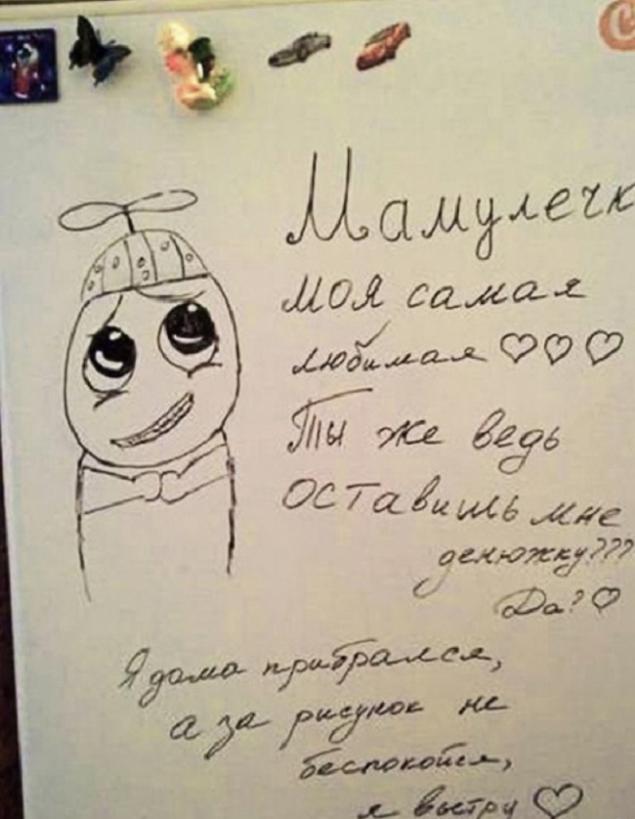 Мамулечк
моя самая
любимая ♡♡♡
Ты же ведь
оставишь мне
денюжку???
Да? ♡
Я дома прибрался,
а за рисунок не
беспокойся,
я вытру ♡
C